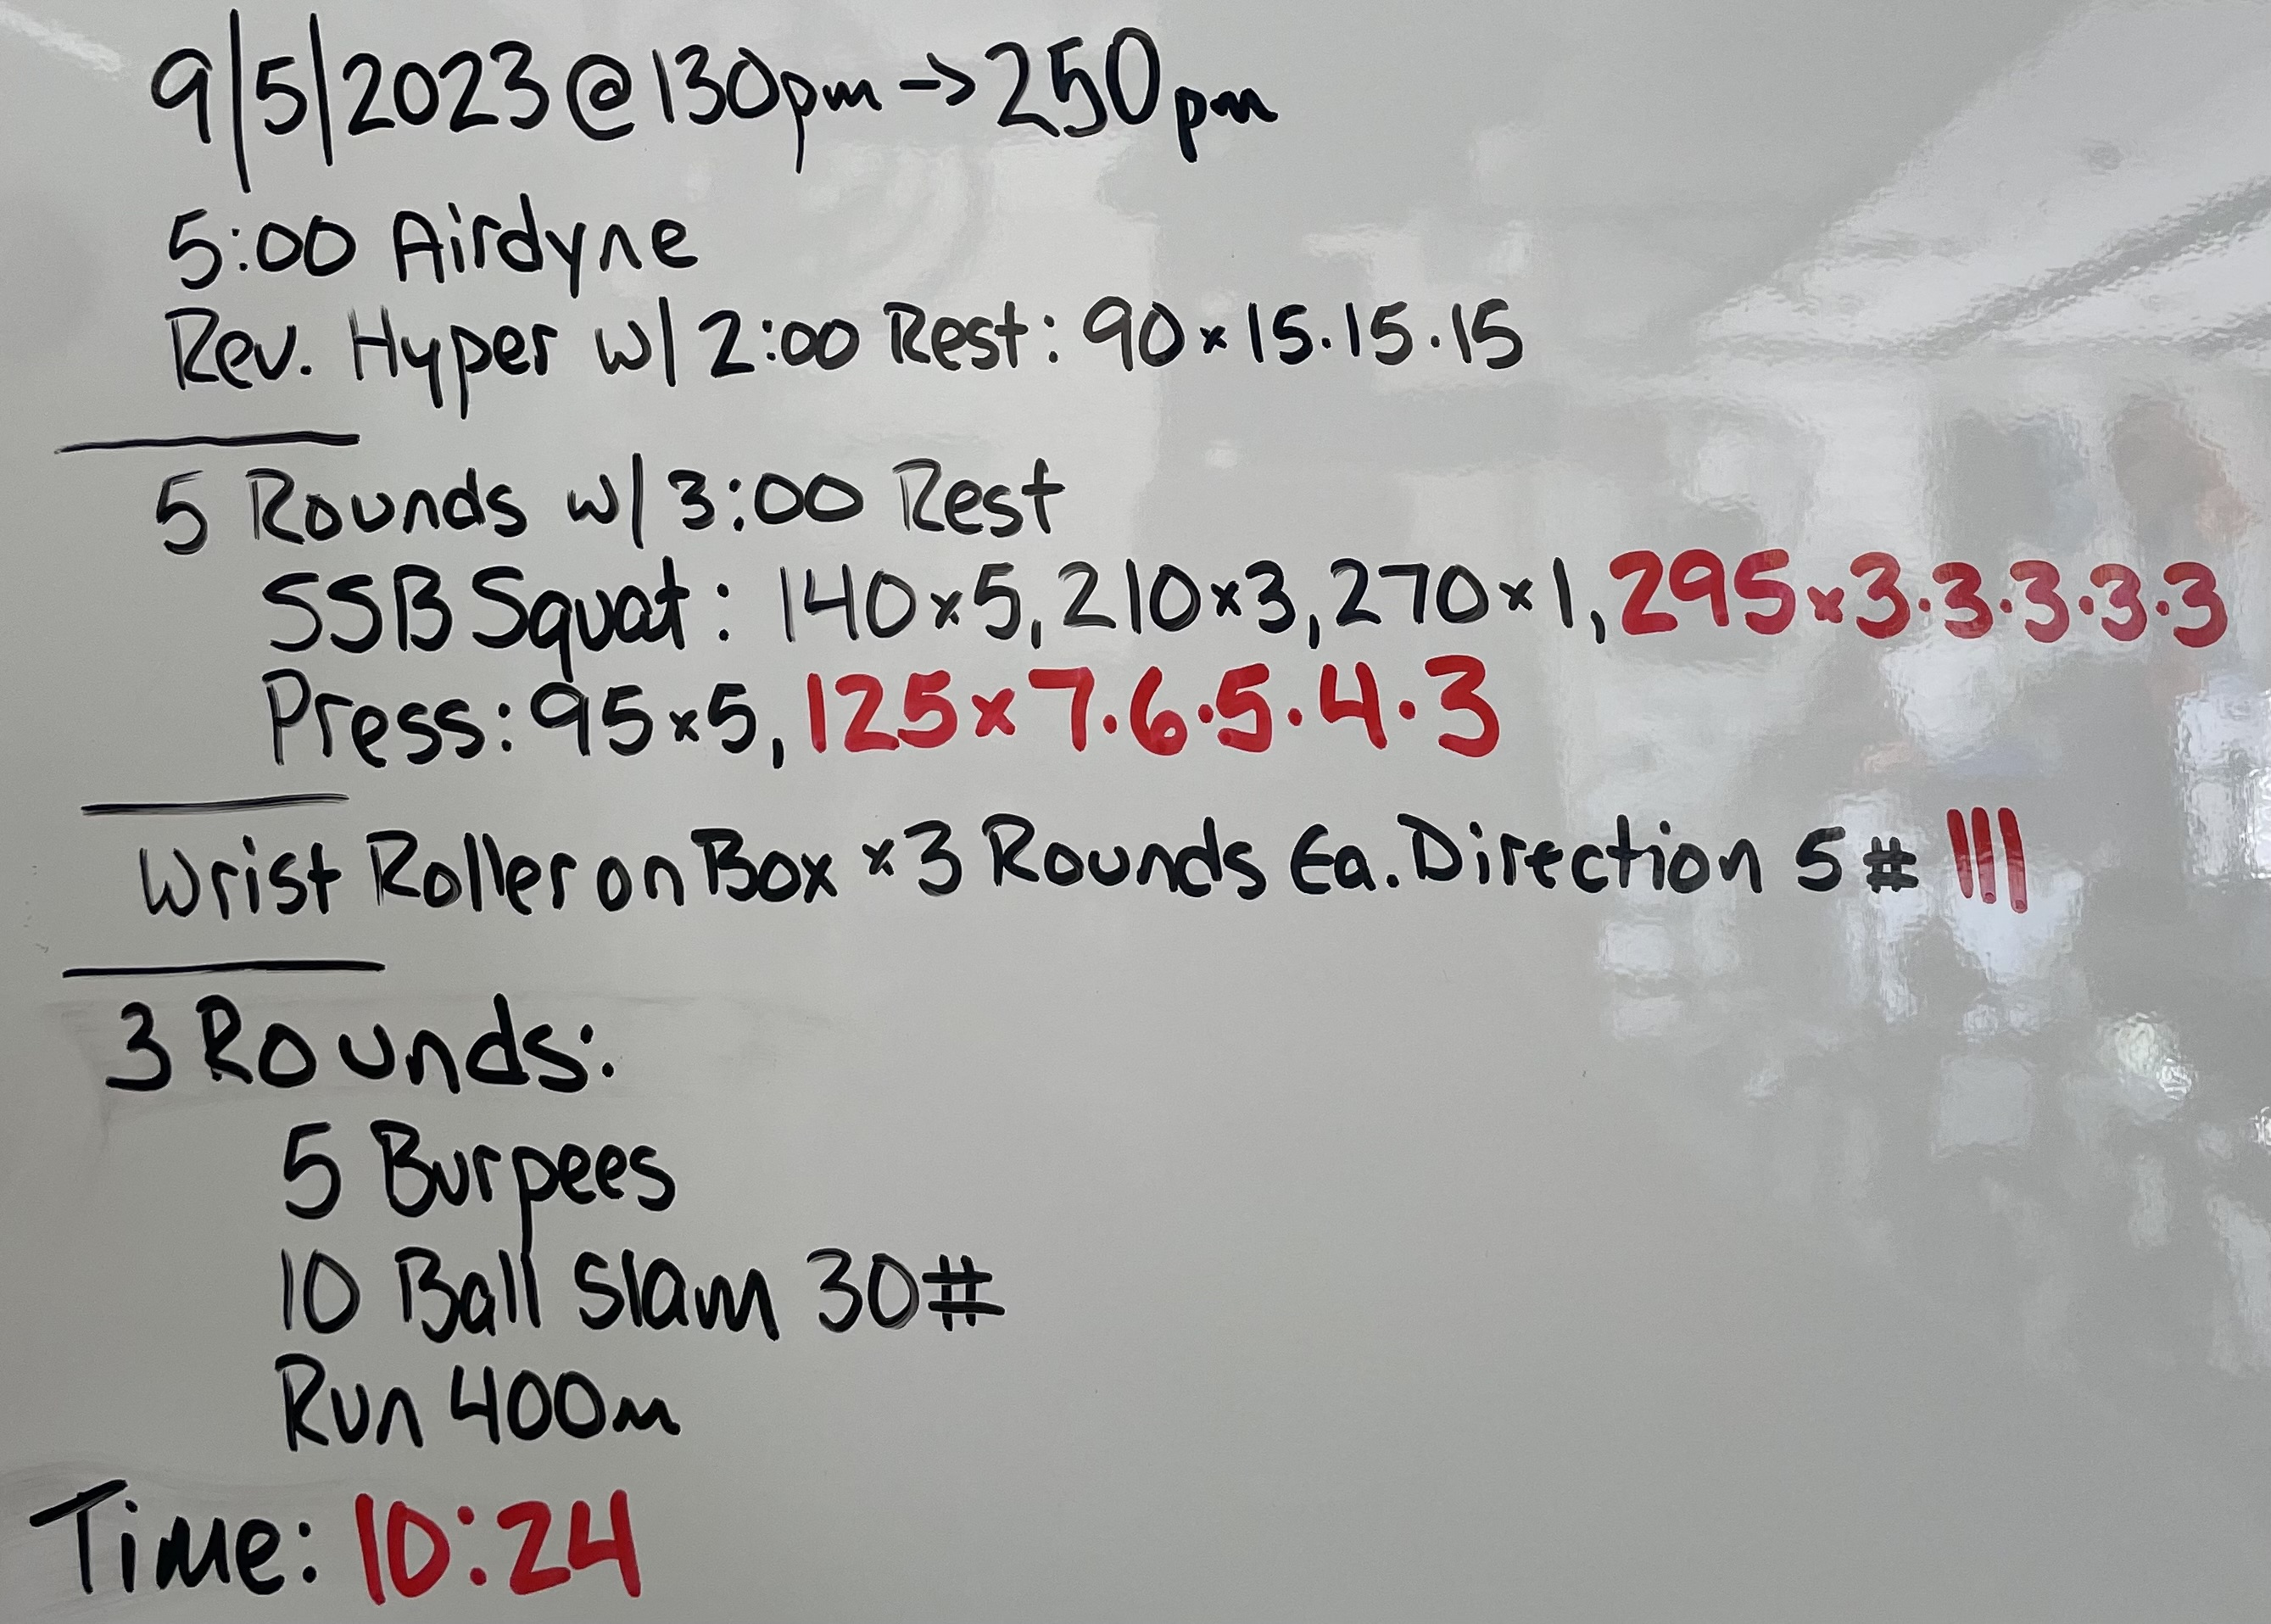 9/5/2023 @ 130pm -> 250pm
5:00 Airdyne
Rev. Hyper w/ 2:00 Rest: 90 x 15.15.15
5 Rounds w/ 3:00 Rest
SSB Squat: 140x5, 210x3, 270x1, 295x3.3.3.3.3
Press: 95x5, 125x7.6.5.4.3
Wrist Roller on Box x3 Rounds Ea. Direction 5# |||
3 Rounds:
5 Burpees
10 Ball Slam 30#
Run 400m
Time: 10:24